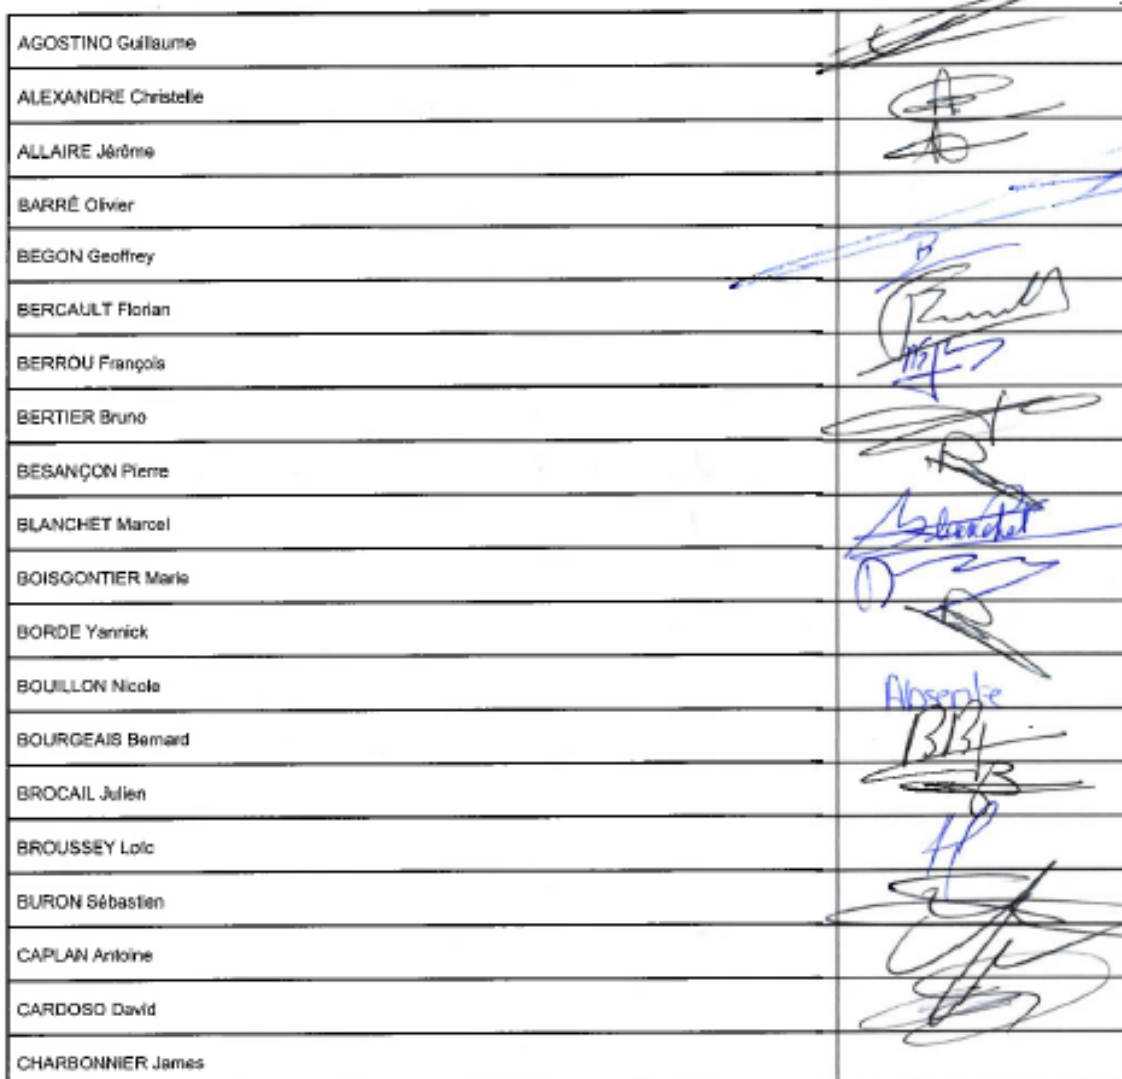 AGOSTINO Guillaume
ALEXANDRE Christelle
ALLAIRE Jérôme
BARRÉ Olivier
BEGON Geoffrey
BERCAULT Florian
BERROU François
BERTIER Bruno
BESANÇON Pierre
BLANCHET Marcel Blanchet
BOISGONTIER Marie
BORDE Yannick
BOUILLON Nicole Absente
BOURGEAIS Bernard
BROCAIL Julien
BROUSSEY Loïc
BURON Sébastien
CAPLAN Antoine
CARDOSO David
CHARBONNIER James